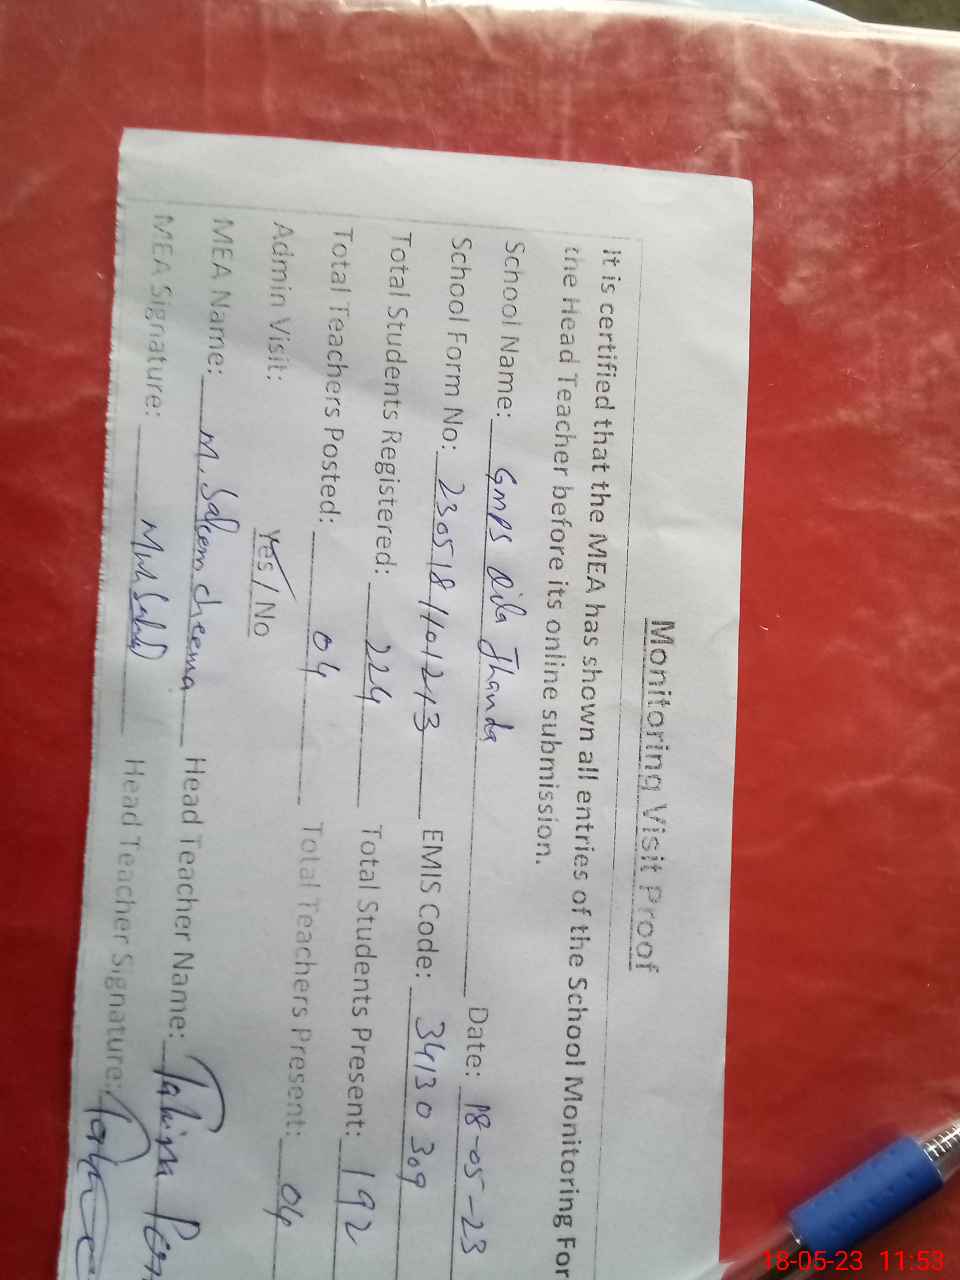 Monitoring Visit Proof
It is certified that the MEA has shown all entries of the School Monitoring For
the Head Teacher before its online submission.
School Name: GMPS Qila Jhanda Date: 18-05-23
School Form No: EMIS Code: 34130309
Total Students Registered: 224 Total Students Present: 192
Total Teachers Posted: 04 Total Teachers Present: 04
Admin Visit: Yes / No
MEA Name: M. Saleem cheema Head Teacher Name:
MEA Signature: Head Teacher Signature:
18-05-23 11:53